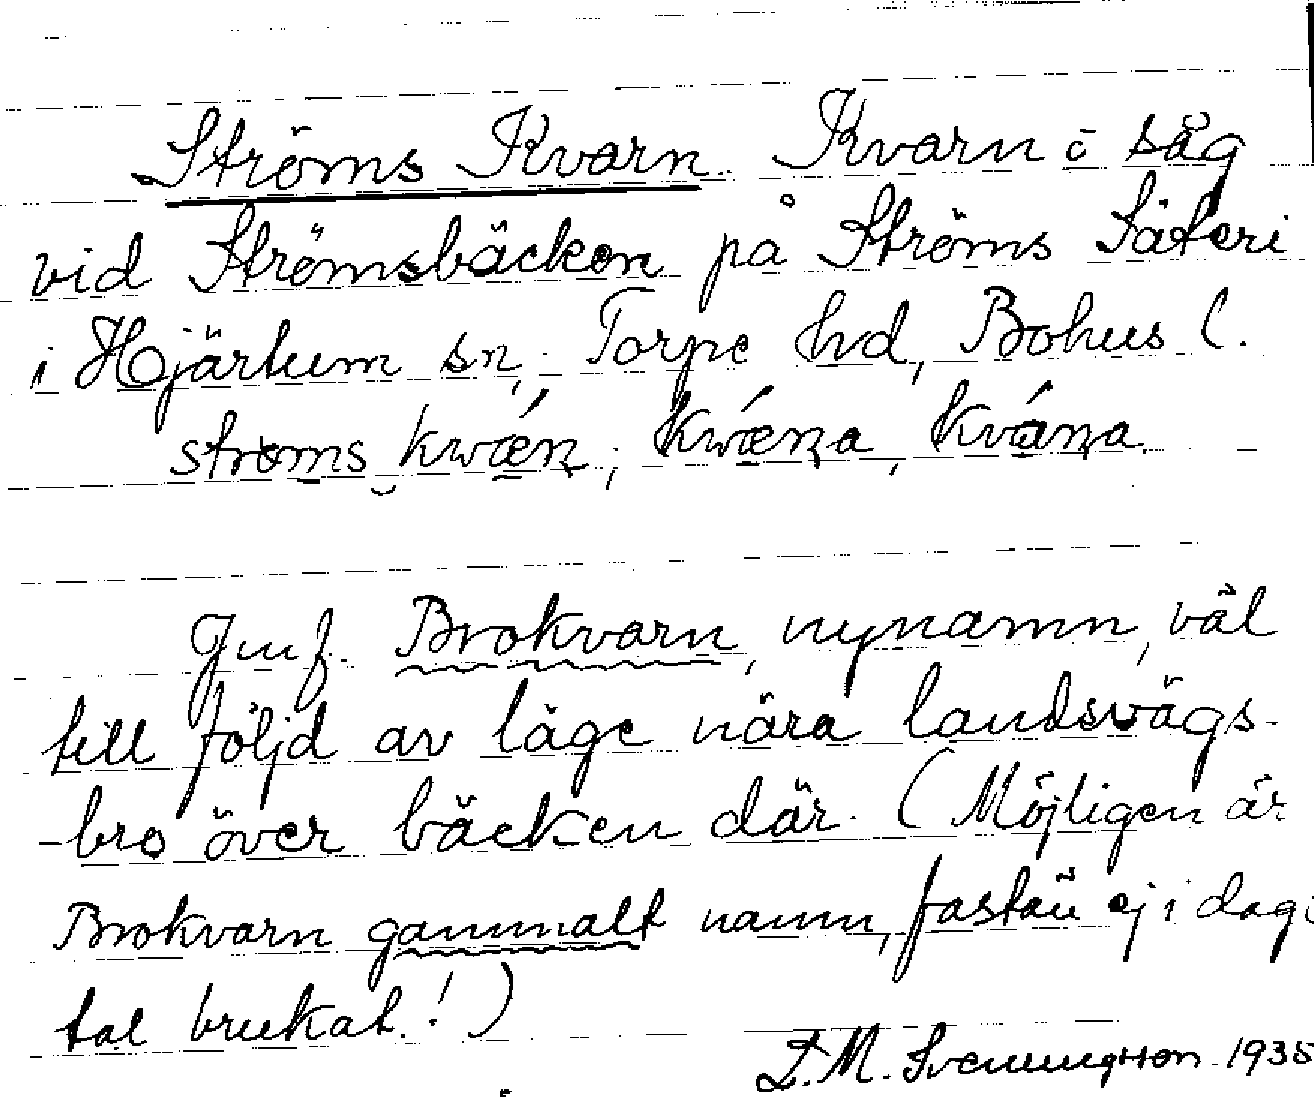 Ströms Kvarn. Kvarn o såg
vid Strömsbäcken på Ströms Säteri
i Hjärtum sn, Torpe hd, Bohus l.
ströms kwǽn, kwǽna, kvána.
Jmf. Brokvarn, nynamn, väl
till följd av läge nära landsvägs-
-bro över bäcken där. (Möjligen är
Brokvarn gammalt namn, fastän ej i dagi
tal brukat!)
L. M. Svenungsson 1935